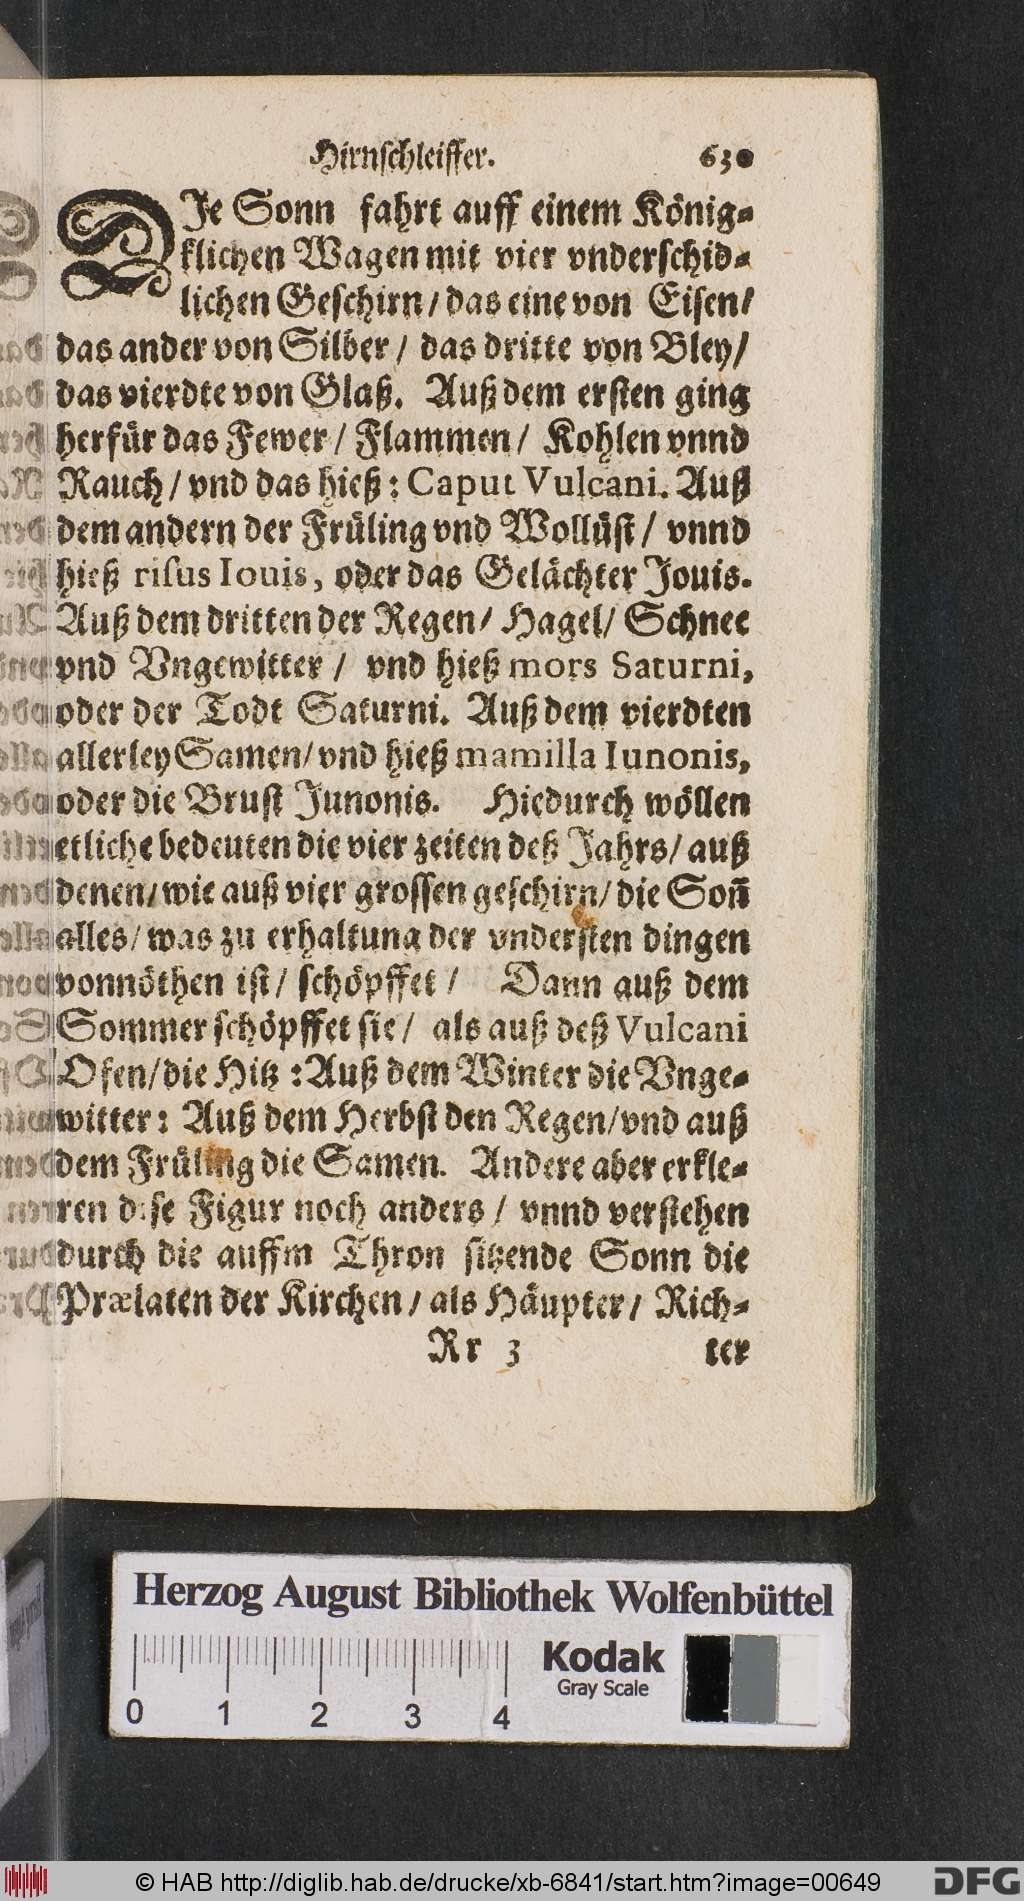 Hirnschleiffer. 630
DJe Sonn fahrt auff einem König-
klichen Wagen mit vier vnderschid-
lichen Geschirn / das eine von Eisen /
das ander von Silber / das dritte von Bley /
das vierdte von Glaß. Auß dem ersten ging
herfür das Fewer / Flammen / Kohlen vnnd
Rauch / vnd das hieß : Caput Vulcani. Auß
dem andern der Früling vnd Wollüst / vnnd
hieß risus Iouis, oder das Gelächter Jouis.
Auß dem dritten der Regen / Hagel / Schnee
vnd Vngewitter / vnd hieß mors Saturni,
oder der Todt Saturni. Auß dem vierdten
allerley Samen / vnd hieß mamilla Iunonis,
oder die Brust Junonis. Hiedurch wöllen
etliche bedeuten die vier zeiten deß Jahrs / auß
denen / wie auß vier grossen geschirn / die Soñ
alles / was zu erhaltung der vndersten dingen
vonnöthen ist / schöpffet / Dann auß dem
Sommer schöpffet sie / als auß deß Vulcani
Ofen / die Hitz : Auß dem Winter die Vnge-
witter : Auß dem Herbst den Regen / vnd auß
dem Früling die Samen. Andere aber erkle-
ren dise Figur noch anders / vnnd verstehen
durch die auffm Thron sitzende Sonn die
Prælaten der Kirchen / als Häupter / Rich-
Rr 3 ter
Herzog August Bibliothek Wolfenbüttel
Kodak
Gray Scale
0 1 2 3 4
© HAB http://diglib.hab.de/drucke/xb-6841/start.htm?image=00649 DFG